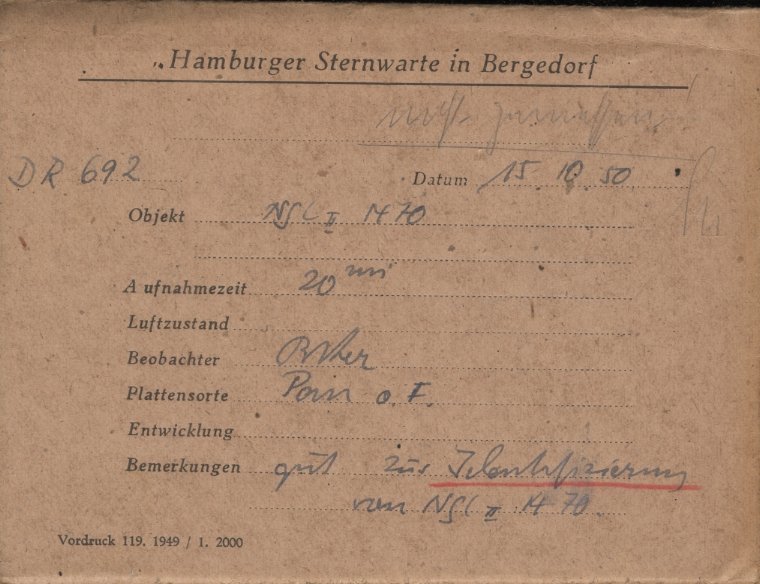 Hamburger Sternwarte in Bergedorf
nicht
DR 692
Datum 15. 10. 50
Objekt
II 1470
Aufnahmezeit 20 min
Luftzustand
Beobachter
Plattensorte
Entwicklung
Bemerkungen gut zur Identifizierung
von II 1470.
Vordruck 119. 1949 / 1. 2000